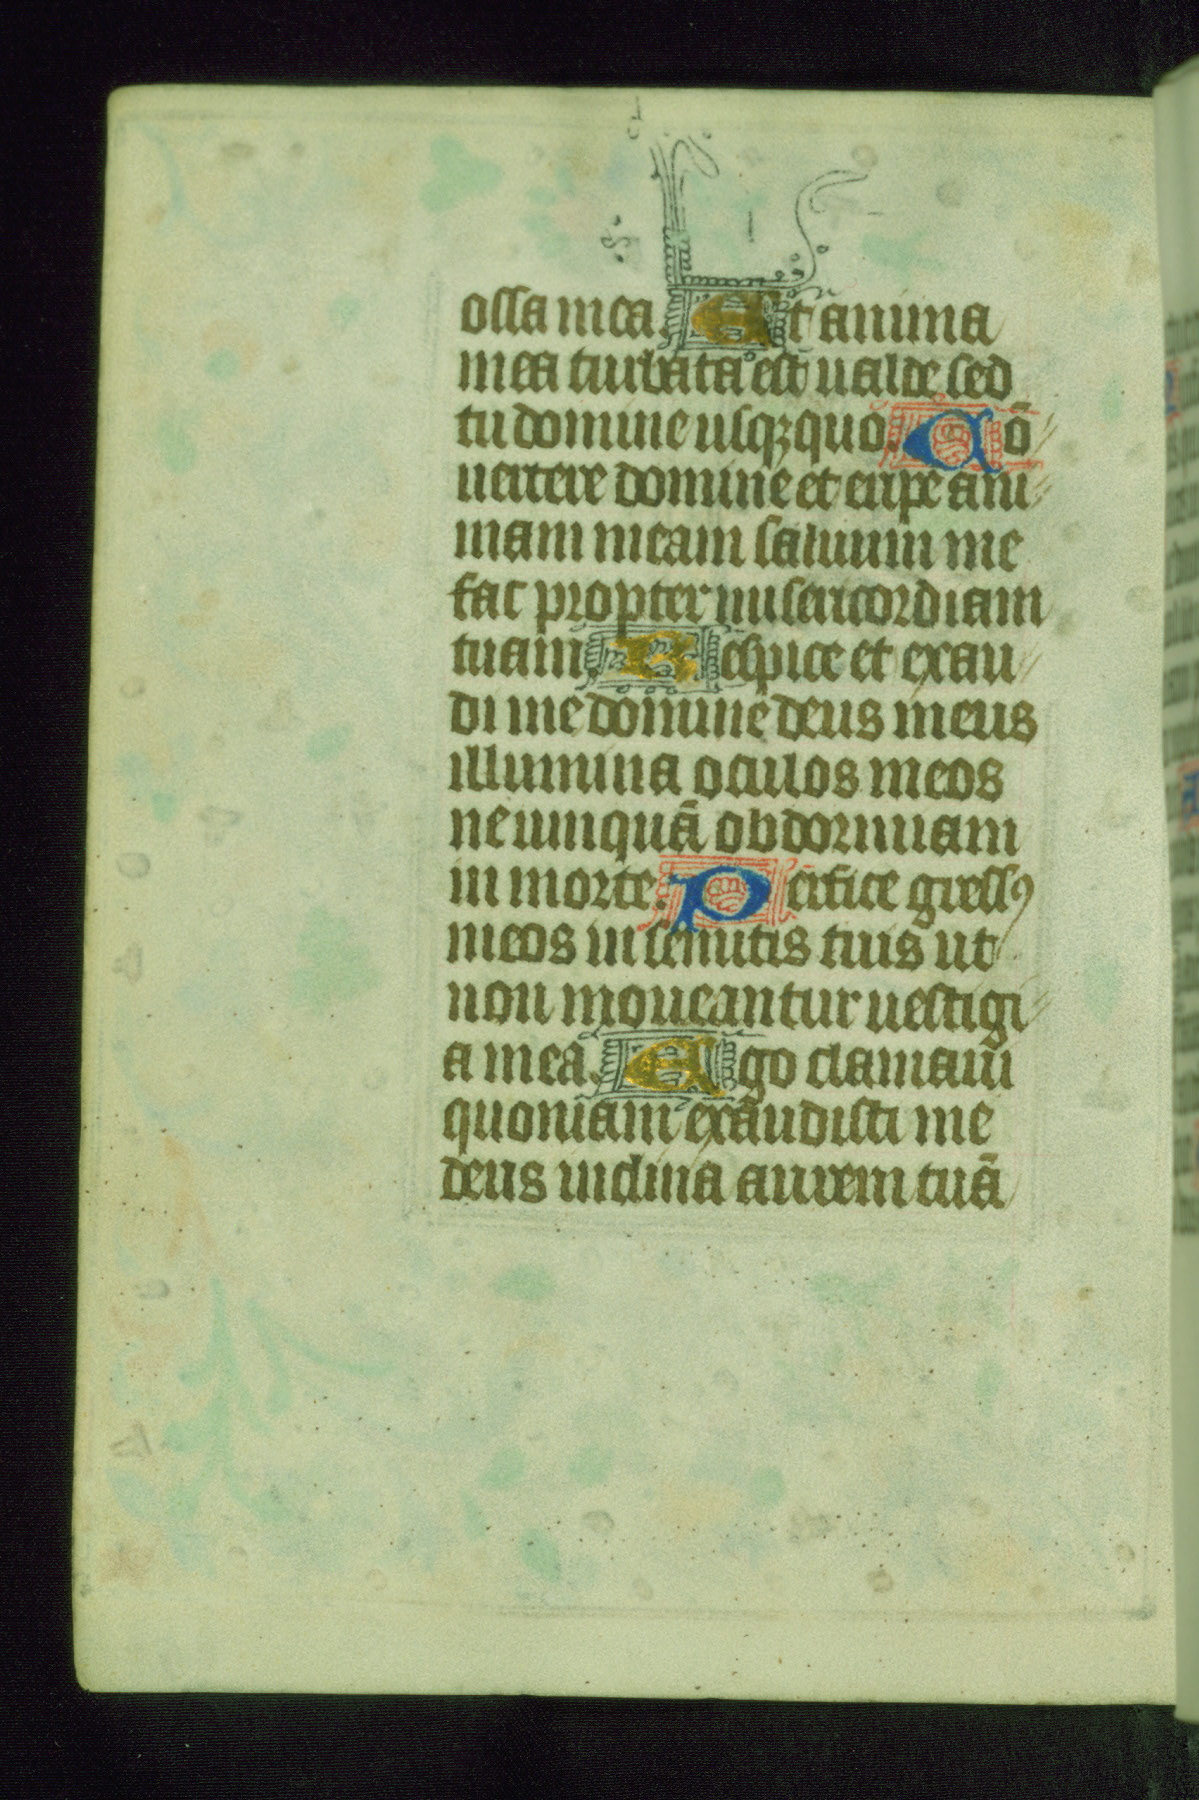 ossa mea. Et anima
mea turbata est ualde sed
tu domine usqꝫquo. Cō
uertere domine et eripe ani
mam meam saluum me
fac propter misericordiam
tuam. Respice et exau
di me domine deus meus
illumina oculos meos
ne umquā obdormiam
in morte. Perfice gressꝰ
meos in semitis tuis ut
non moueantur uestigi
a mea. Ego clamaui
quoniam exaudisti me
deus inclina aurem tuā